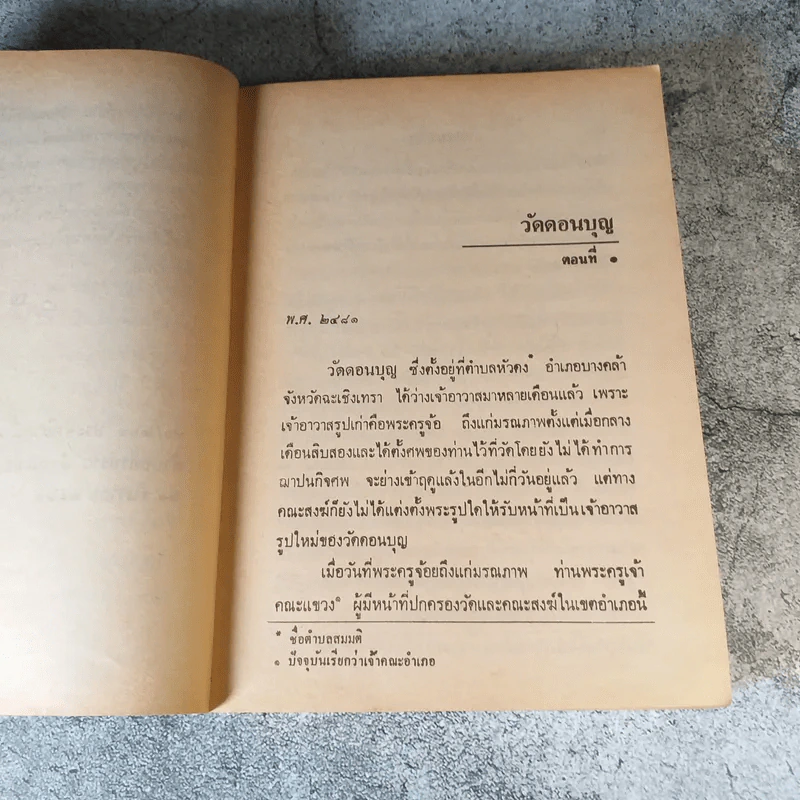 วัดดอนบุญ
ตอนที่ ๑
พ.ศ. ๒๔๘๑
วัดดอนบุญ ซึ่งตั้งอยู่ที่ตำบลหัวดง* อำเภอบางคล้า
จังหวัดฉะเชิงเทรา ได้ว่างเจ้าอาวาสมาหลายเดือนแล้ว เพราะ
เจ้าอาวาสรูปเก่าคือพระครูจ้อ ถึงแก่มรณภาพตั้งแต่เมื่อกลาง
เดือนสิบสองและได้ตั้งศพของท่านไว้ที่วัดโดยยังไม่ได้ทำการ
ฌาปนกิจศพ จะย่างเข้าฤดูแล้งในอีกไม่กี่วันอยู่แล้ว แต่ทาง
คณะสงฆ์ก็ยังไม่ได้แต่งตั้งพระรูปใดให้รับหน้าที่เป็นเจ้าอาวาส
รูปใหม่ของวัดดอนบุญ
เมื่อวันที่พระครูจ้อยถึงแก่มรณภาพ ท่านพระครูเจ้า
คณะแขวง๑ ผู้มีหน้าที่ปกครองวัดและคณะสงฆ์ในเขตอำเภอนี้
* ชื่อตำบลสมมติ
๑ ปัจจุบันเรียกว่าเจ้าคณะอำเภอ